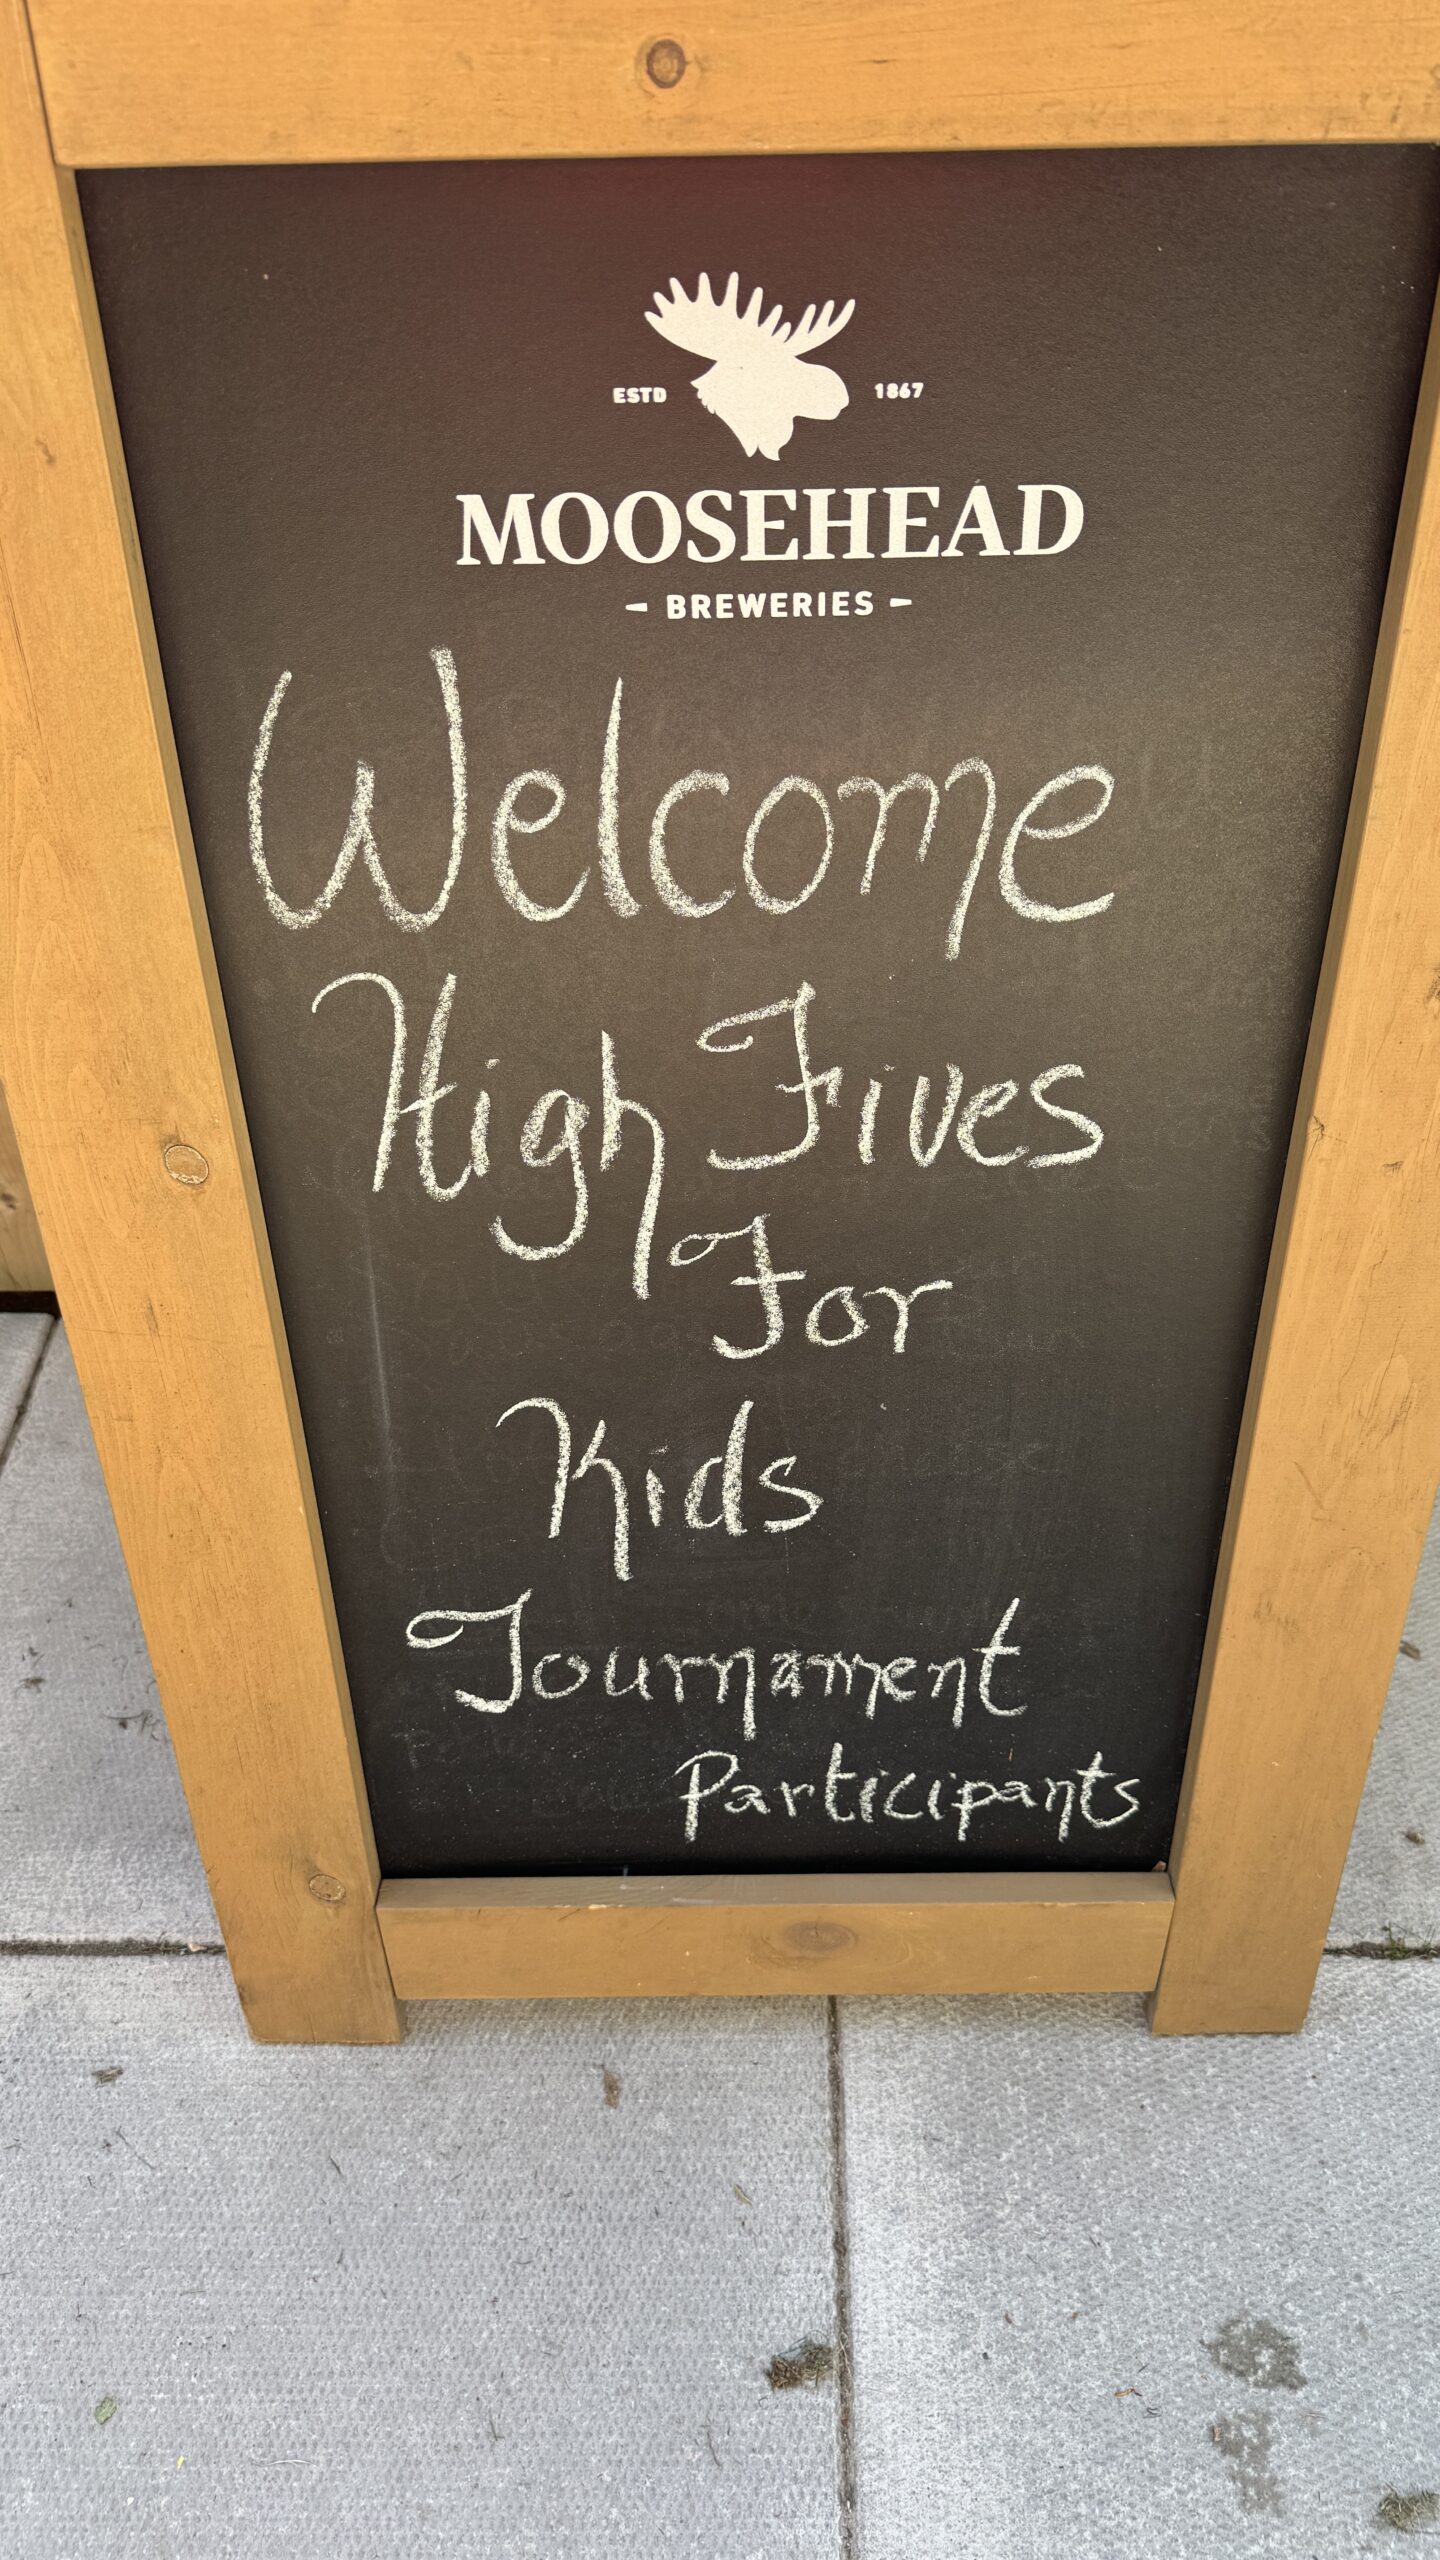 ESTD 1867
MOOSEHEAD
- BREWERIES -
Welcome
High Fives
For
Kids
Tournament
Participants